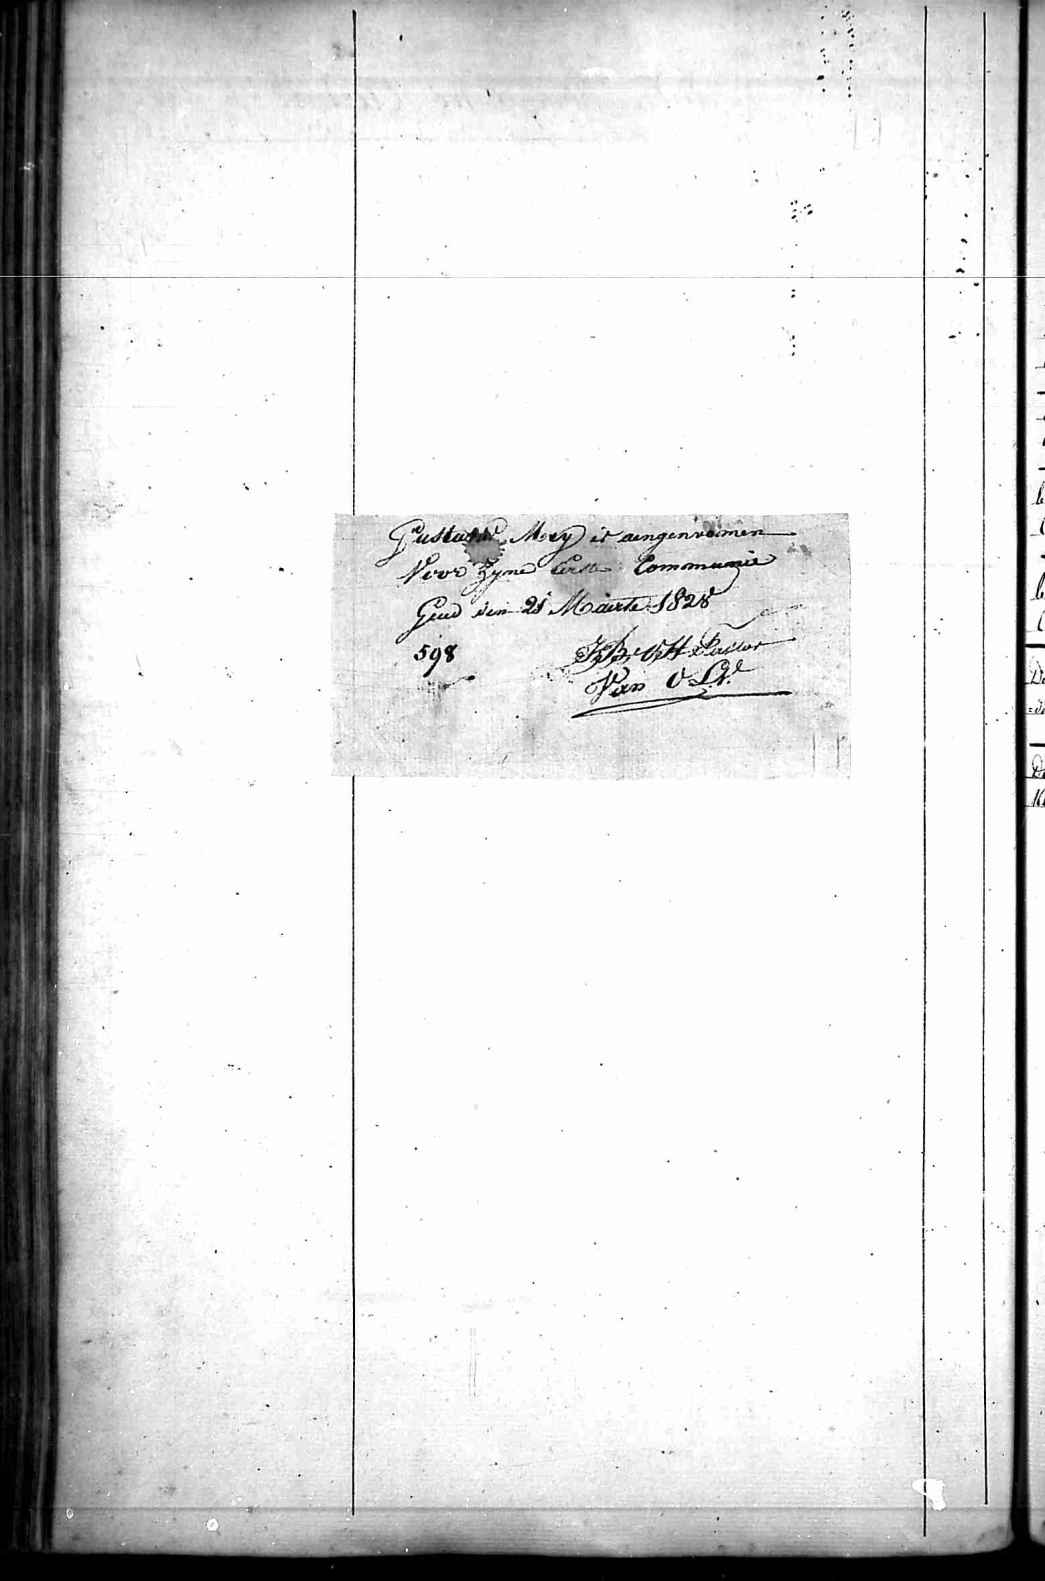 Gustavus Mory is aengenomen
Voor Zyne Eerste Communie
Gend den 21 Maerte 1828
598
Pastor
Van O.L.V.